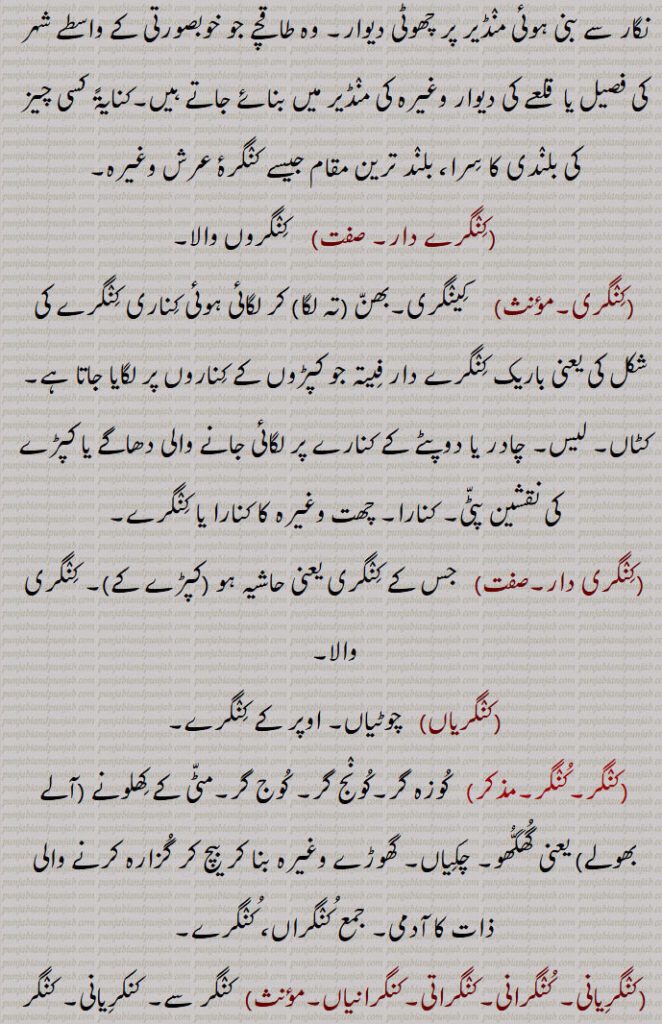 نگار سے بنی ہوئی منْڈیر پر چھوٹی دیوار۔ وہ طاقچے جو خوبصورتی کے واسطے شہر
کی فصیل یا قلعے کی دیوار وغیرہ کی منْڈیر میں بنائے جاتے ہیں۔کنایۃً کسی چیز
کی بلنْدی کا سِرا، بلنْد ترین مقام جیسے کنْگرۂ عرش وغیرہ۔
(کِنْگرے دار۔ صفت) کِنْگروں والا۔
(کِنْگری۔مؤنث) کِینْگری۔بھنّ (تہ لگا) کر لگائی ہوئی کِناری کِنْگرے کی
شکل کی یعنی باریک کِنْگرے دار فِیتہ جو کپڑوں کے کِناروں پر لگایا جاتا ہے۔
کٹاں۔ لیس۔ چادر یا دوپٹے کے کنارے پر لگائی جانے والی دھاگے یا کپڑے
کی نقشین پٹّی۔ کنارا۔ چھت وغیرہ کا کنارا یا کِنْگرے۔
(کِنْگری دار۔صفت) جس کے کِنْگری یعنی حاشیہ ہو (کپڑے کے)۔ کِنْگری
والا۔
(کنْگریاں) چوٹیاں۔ اوپر کے کِنْگرے۔
(کنْگر۔کُنْگر۔مذکر) کُوزہ گر۔کُونْج گر۔ کُوج گر۔مٹّی کے کِھلونے (آلے
بھولے) یعنی گُھگُّھو۔ چکِیاں۔ گھوڑے وغیرہ بنا کر بیچ کر گُزارہ کرنے والی
ذات کا آدمی۔ جمع کُنْگراں، کُنْگرے۔
(کنْگرِیانی۔ کُنْگرانی۔کنْگراتی۔کنگرانیاں۔مؤنث) کنْگر سے۔ کنکرِیانی۔ کنْگر